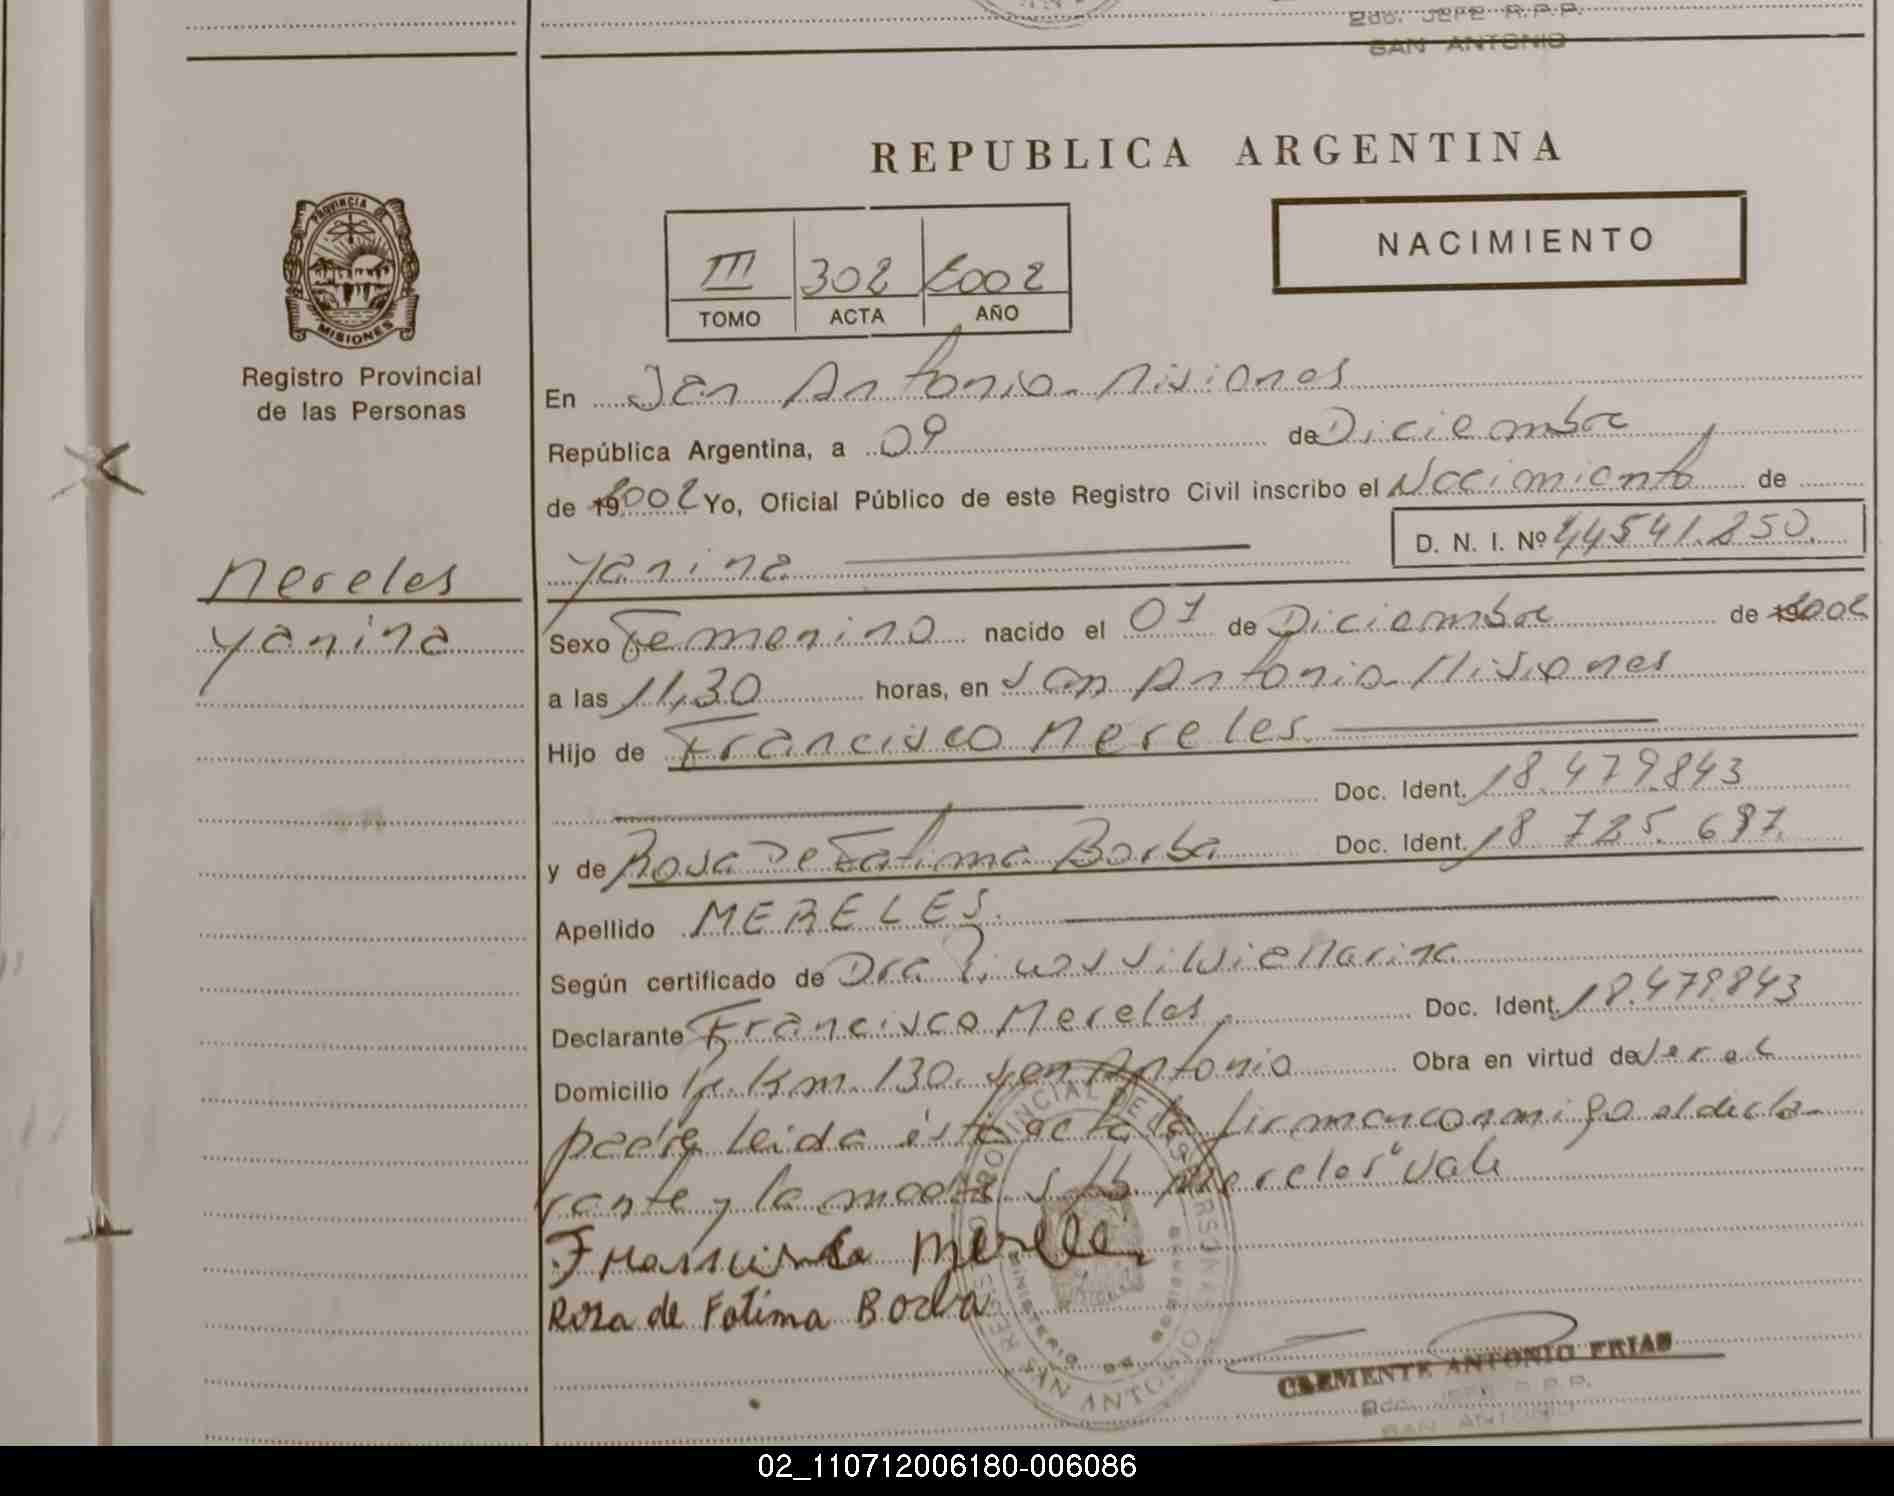 2do. JEFE R.P.P.
SAN ANTONIO
REPUBLICA ARGENTINA
NACIMIENTO
III 302 2002
TOMO ACTA AÑO
PROVINCIA DE
MISIONES
Registro Provincial
de las Personas
En San Antonio - Misiones
República Argentina, a 09 de Diciembre
de 19 2002 Yo, Oficial Público de este Registro Civil inscribo el Nacimiento de
Yanina D. N. I. Nº 44541.250.
Mereles
Yanina
Sexo Femenino nacido el 01 de Diciembre de 19 2002
a las 11,30 horas, en San Antonio - Misiones
Hijo de Francisco Mereles
Doc. Ident. 18.479.843
y de Rosa De Fatima Borba Doc. Ident. 18 725. 697.
Apellido MERELES.
Según certificado de Dra
Declarante Francisco Mereles Doc. Ident. 18.479843
Domicilio Km. 130. San Antonio Obra en virtud de ser el
padre leida ésta acta la firman conmigo el decla-
rante y la madre S/b. Mereles" Vale
Mereles
Rosa de Fatima Borba
REGISTRO PROVINCIAL DE LAS PERSONAS
MINISTERIO DE GOBIERNO
SAN ANTONIO
CLEMENTE ANTONIO FRIAS
2do. JEFE R.P.P.
SAN ANTONIO
02_110712006180-006086